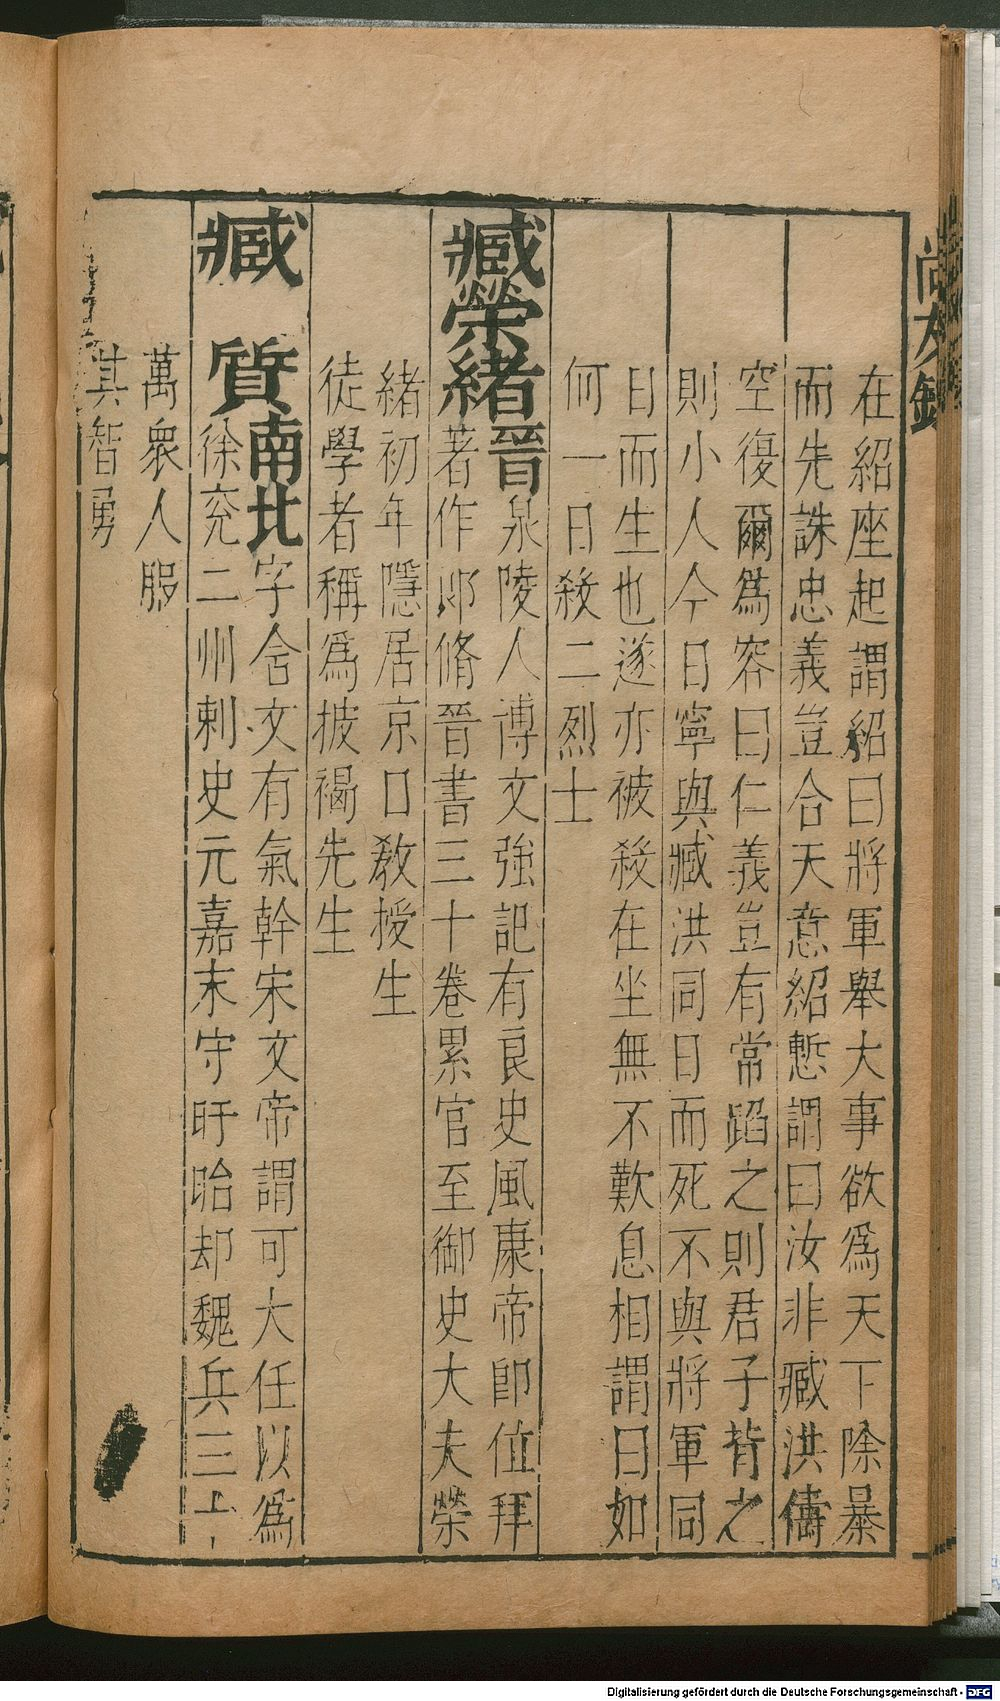 尚友錄
在紹座起謂紹曰將軍舉大事欲爲天下除暴
而先誅忠義豈合天意紹慙謂曰汝非臧洪儔
空復爾爲容曰仁義豈有常蹈之則君子背之
則小人今日寧與臧洪同日而死不與將軍同
日而生也遂亦被殺在坐無不歎息相謂曰如
何一日殺二烈士
臧榮緒晉
泉陵人博文強記有良史風康帝卽位拜
著作郎脩晉書三十卷累官至御史大夫榮
緒初年隱居京口敎授生
徒學者稱爲披褐先生
臧質南北
字含文有氣幹宋文帝謂可大任以爲
徐兖二州刺史元嘉末守盱眙却魏兵三十
萬衆人服
其智勇
Digitalisierung gefördert durch die Deutsche Forschungsgemeinschaft - DFG